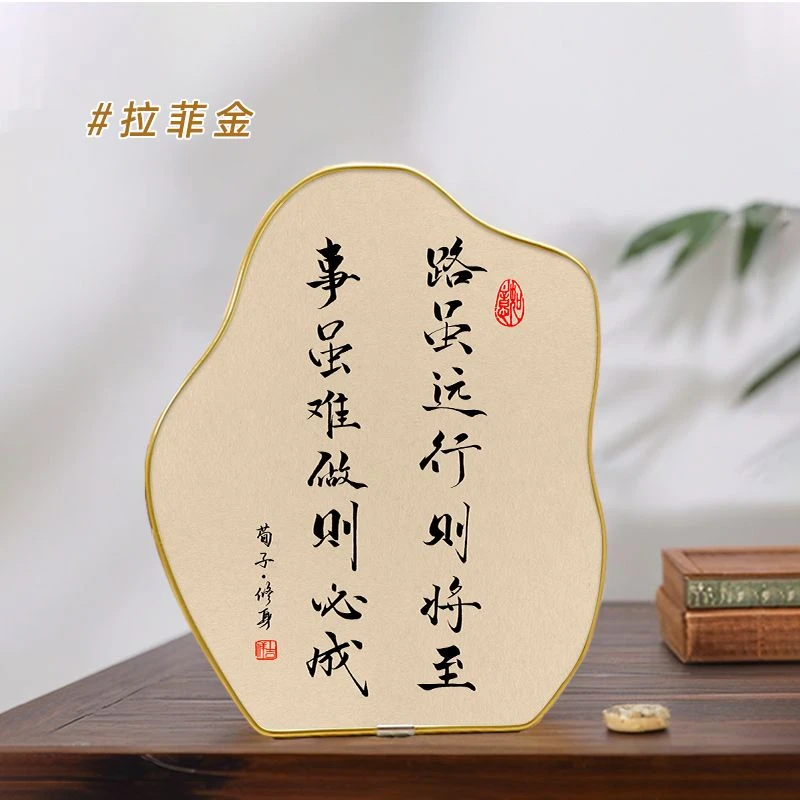 #拉菲金
路虽远行则将至
事虽难做则必成
荀子·修身
如意